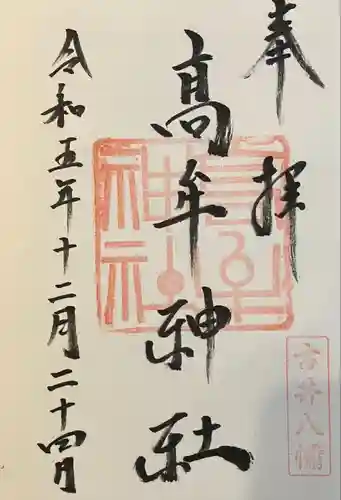 奉拝
高牟神社
令和五年十二月二十四日
古井八幡